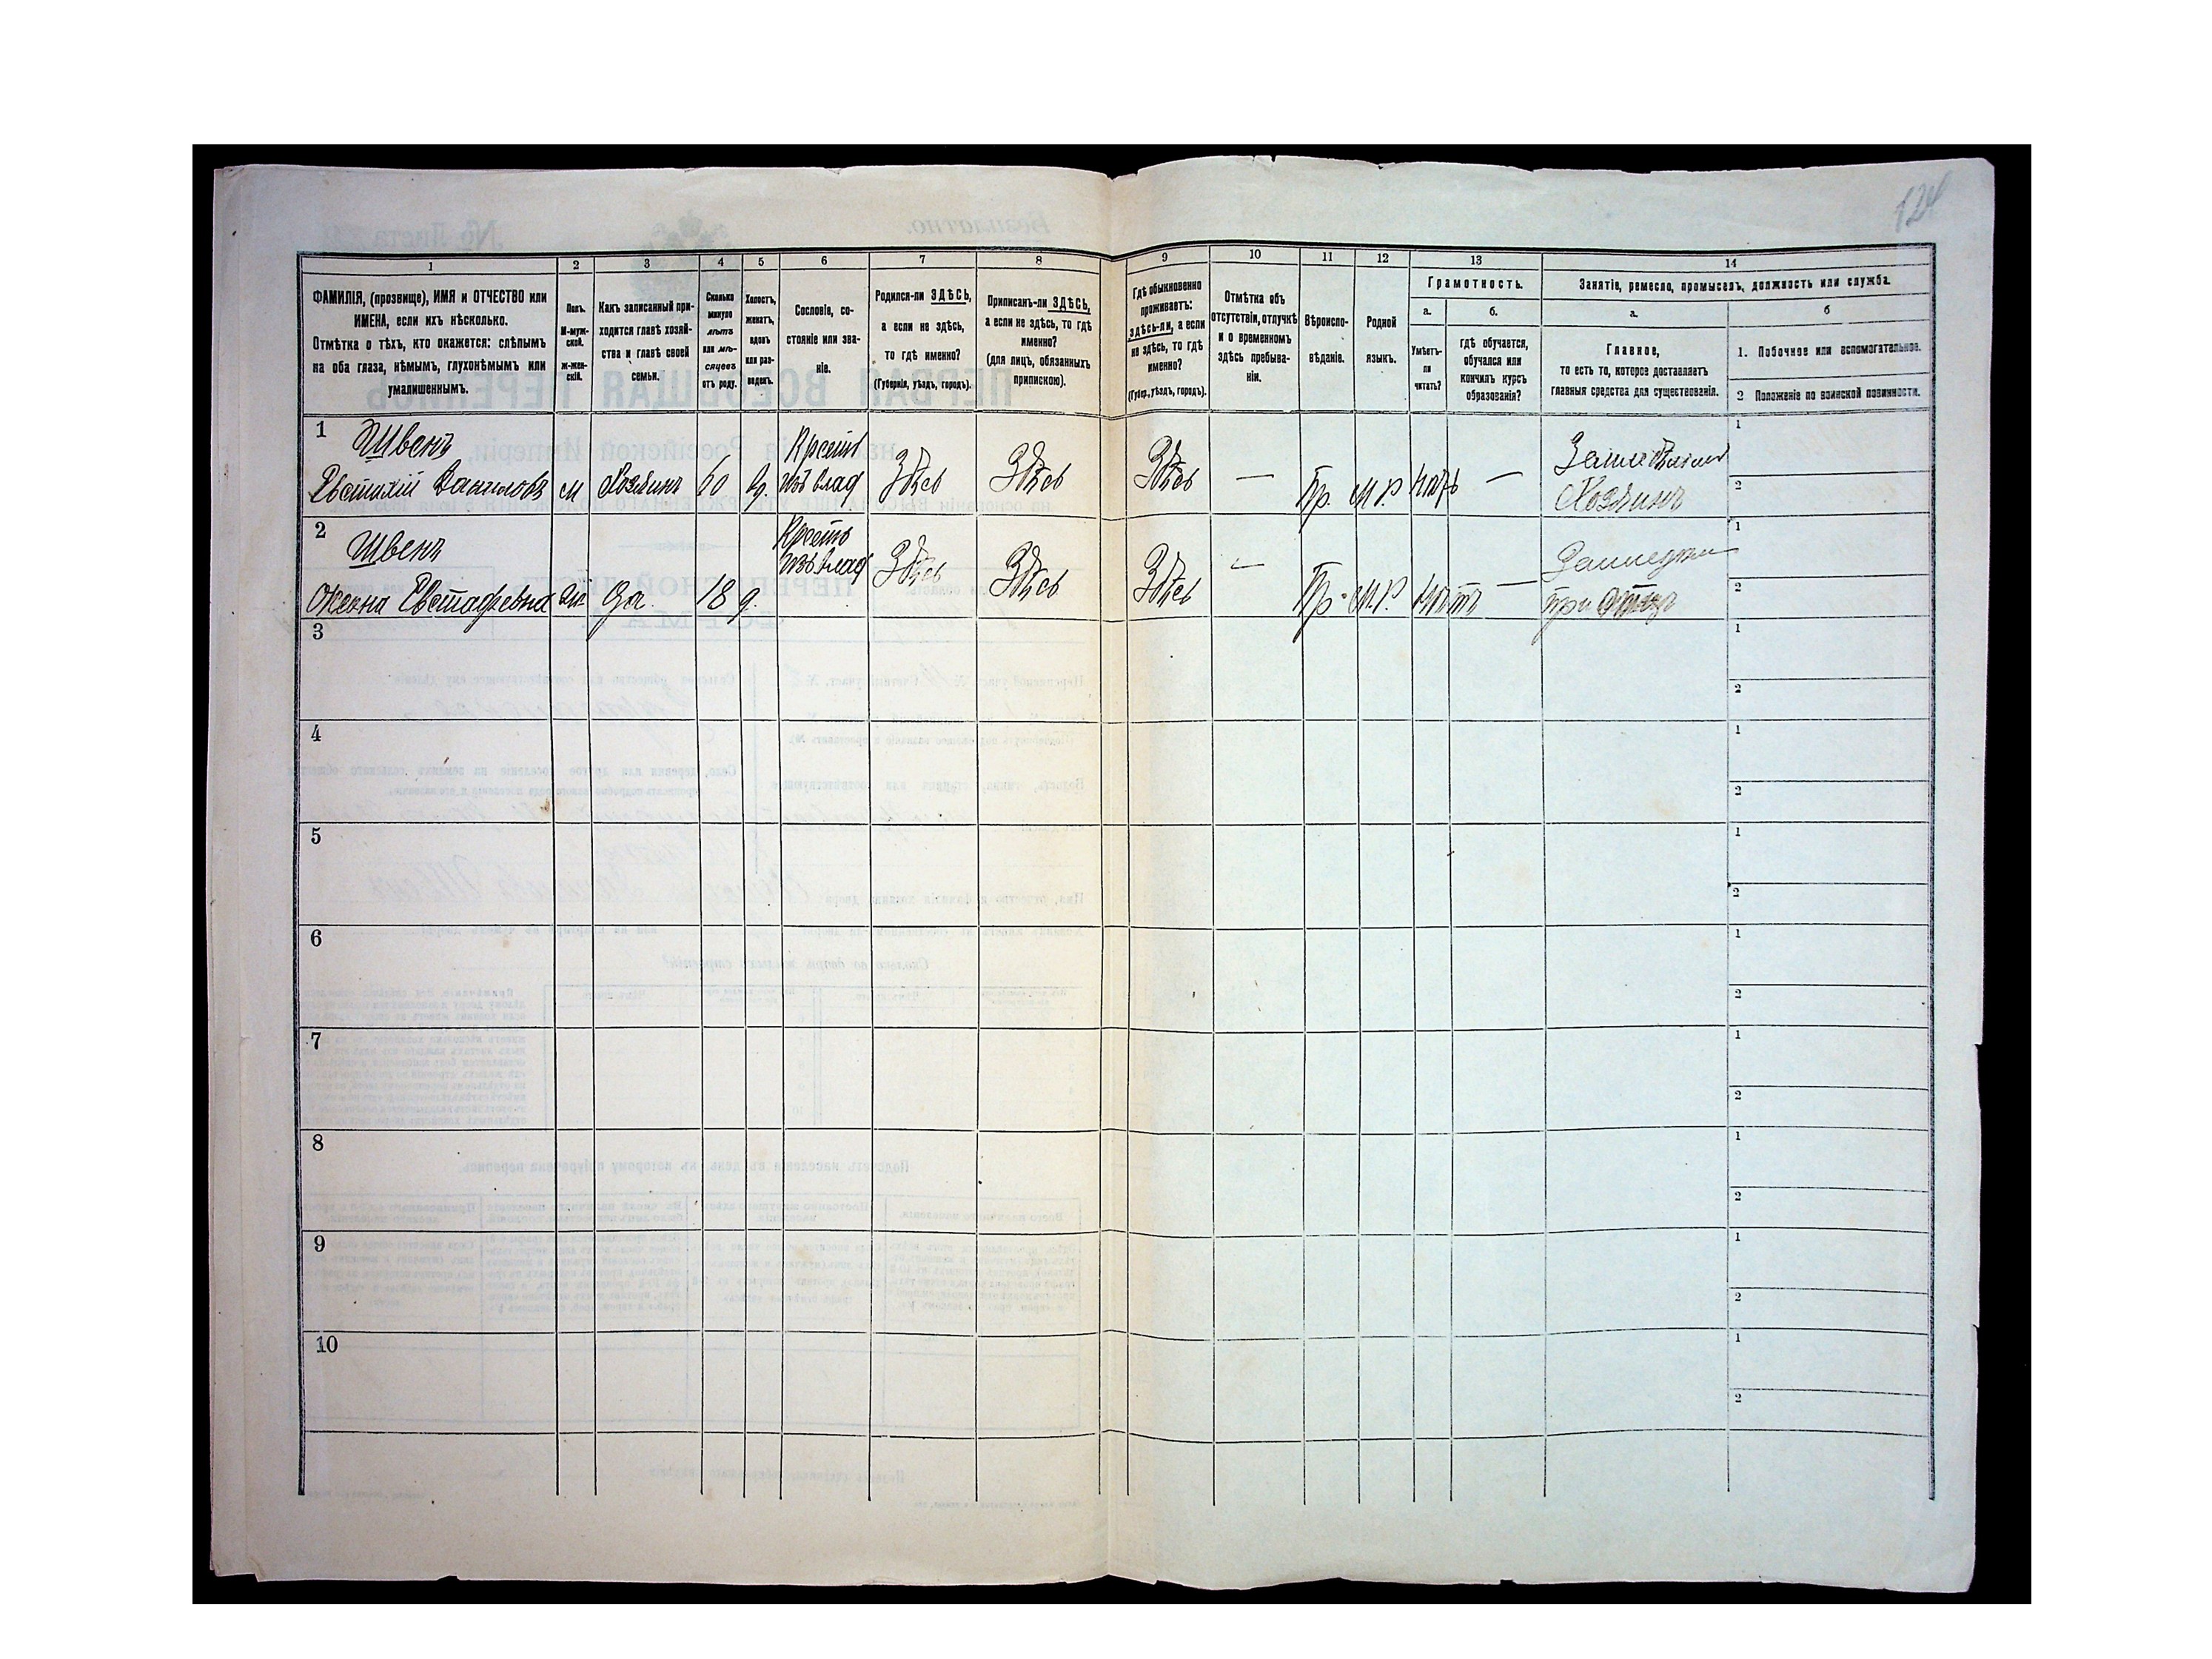 124
1
2
3
4
5
6
7
8
9
10
11
12
13
14
ФАМИЛІЯ, (прозвище), ИМЯ и ОТЧЕСТВО или
ИМЕНА, если ихъ нѣсколько.
Отмѣтка о тѣхъ, кто окажется: слѣпымъ
на оба глаза, нѣмымъ, глухонѣмымъ или
умалишеннымъ.
Полъ.
М-муж-
ской.
ж-жен-
скій.
Какъ записанный при-
ходится главѣ хозяй-
ства и главѣ своей
семьи.
Сколько
минуло
лѣтъ
или мѣ-
сяцевъ
отъ роду.
Холостъ,
женатъ,
вдовъ
или раз-
веденъ.
Сословіе, со-
стояніе или зва-
ніе.
Родился-ли ЗДѢСЬ,
а если не здѣсь,
то гдѣ именно?
(Губернія, уѣздъ, городъ).
Приписанъ-ли ЗДѢСЬ,
а если не здѣсь, то гдѣ
именно?
(для лицъ, обязанныхъ
припискою).
Гдѣ обыкновенно
проживаетъ:
здѣсь-ли, а если
не здѣсь, то гдѣ
именно?
(Губер., уѣздъ, городъ).
Отмѣтка объ
отсутствіи, отлучкѣ
и о временномъ
здѣсь пребыва-
ніи.
Вѣроиспо-
вѣданіе.
Родной
языкъ.
Грамотность.
а.
Умѣетъ-
ли
читать?
б.
гдѣ обучается,
обучался или
кончилъ курсъ
образованія?
Занятіе, ремесло, промыселъ, должность или служба.
а.
Главное,
то есть то, которое доставляетъ
главныя средства для существованія.
б
1. Побочное или вспомогательное.
2 Положеніе по воинской повинности.
1
Швець
Евстихій Даниловъ м Хозяинъ 60 в. Крест изъ влад Здѣсь Здѣсь Здѣсь — Пр. М.Р. нѣтъ — Хозяинъ
1
2
2
Швець
Оксенна ж Да. 18 д. Крест изъ влад Здѣсь Здѣсь Здѣсь — Пр. М.Р. нѣтъ — при
1
2
3
1
2
4
1
2
5
1
2
6
1
2
7
1
2
8
1
2
9
1
2
10
1
2